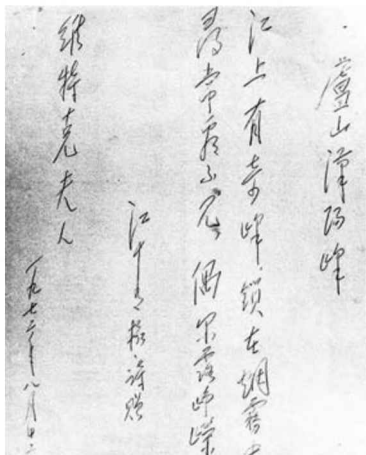 廬山漢阳峰
江上有奇峰，鎖在烟雾
寻常看不见，偶尔露峥嵘
江青 诗赠
维特克夫人
一九七二年八月十二